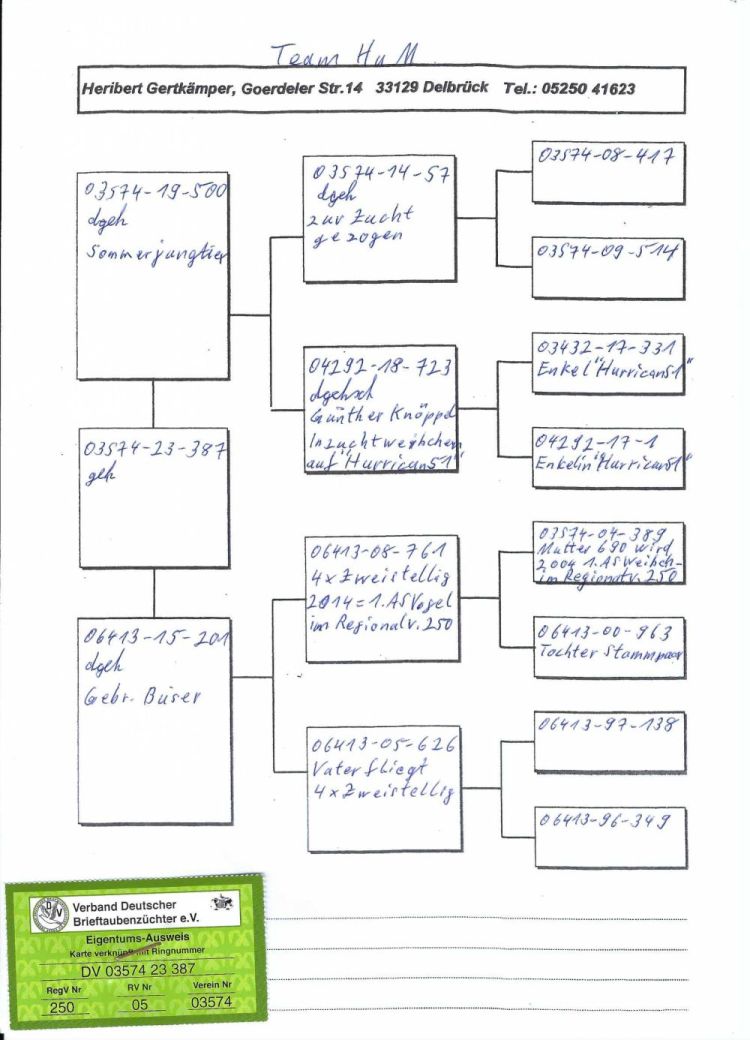 Team H u M
Heribert Gertkämper, Goerdeler Str.14 33129 Delbrück Tel.: 05250 41623
03574-19-500
dgeh
Sommerjungtier
03574-14-57
dgeh
zur Zucht
gezogen
03574-08-417
03574-09-514
04292-18-723
dgehsch
Günther Knöppel
Inzuchtweibchen
auf "Hurrican51"
03432-17-331
Enkel "Hurrican51"
04292-17-1
Enkelin "Hurrican51"
03574-23-387
geh
06413-15-201
dgeh
Gebr. Büser
06413-08-761
4xZweistellig
2014=1.ASVogel
im Regionalv. 250
03574-04-389
Mutter 690 wird
2004 1.ASWeibch-
im Regionalv. 250
06413-00-963
Tochter Stammpaar
06413-05-626
Vater fliegt
4xZweistellig
06413-97-138
06413-96-349
Verband Deutscher
Brieftaubenzüchter e.V.
Eigentums-Ausweis
Karte verknüpft mit Ringnummer
DV 03574 23 387
RegV Nr RV Nr Verein Nr
250 05 03574